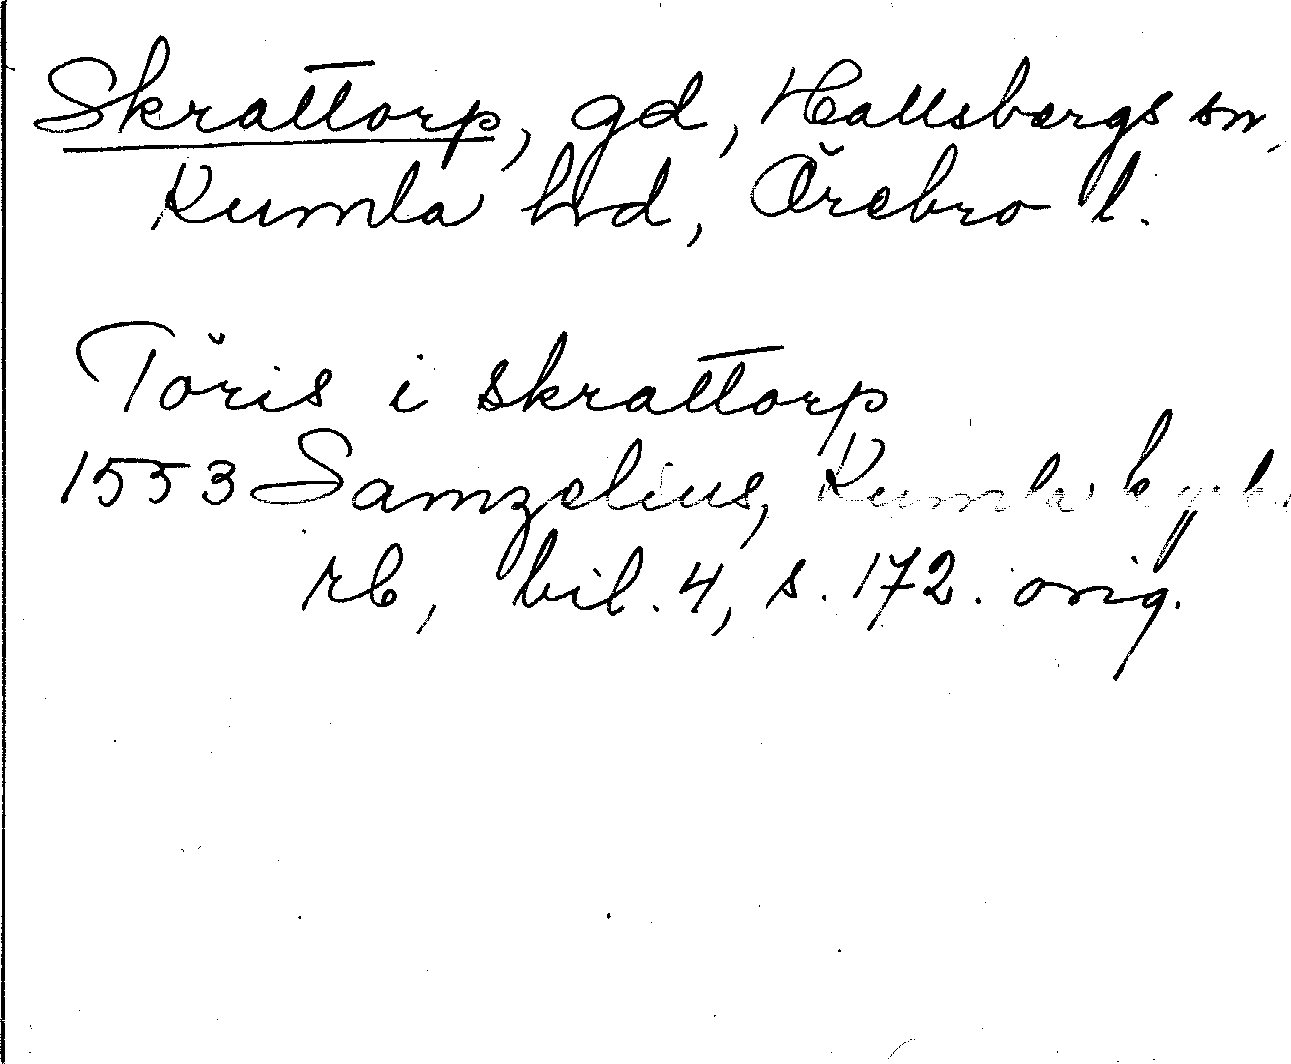 Skrattorp, gd, Hallsbergs sn,
Kumla hd, Örebro l.
Töris i skrattorp
1553 Samzelius, Kumla kyrk.
rb, bil. 4, s. 172. orig.